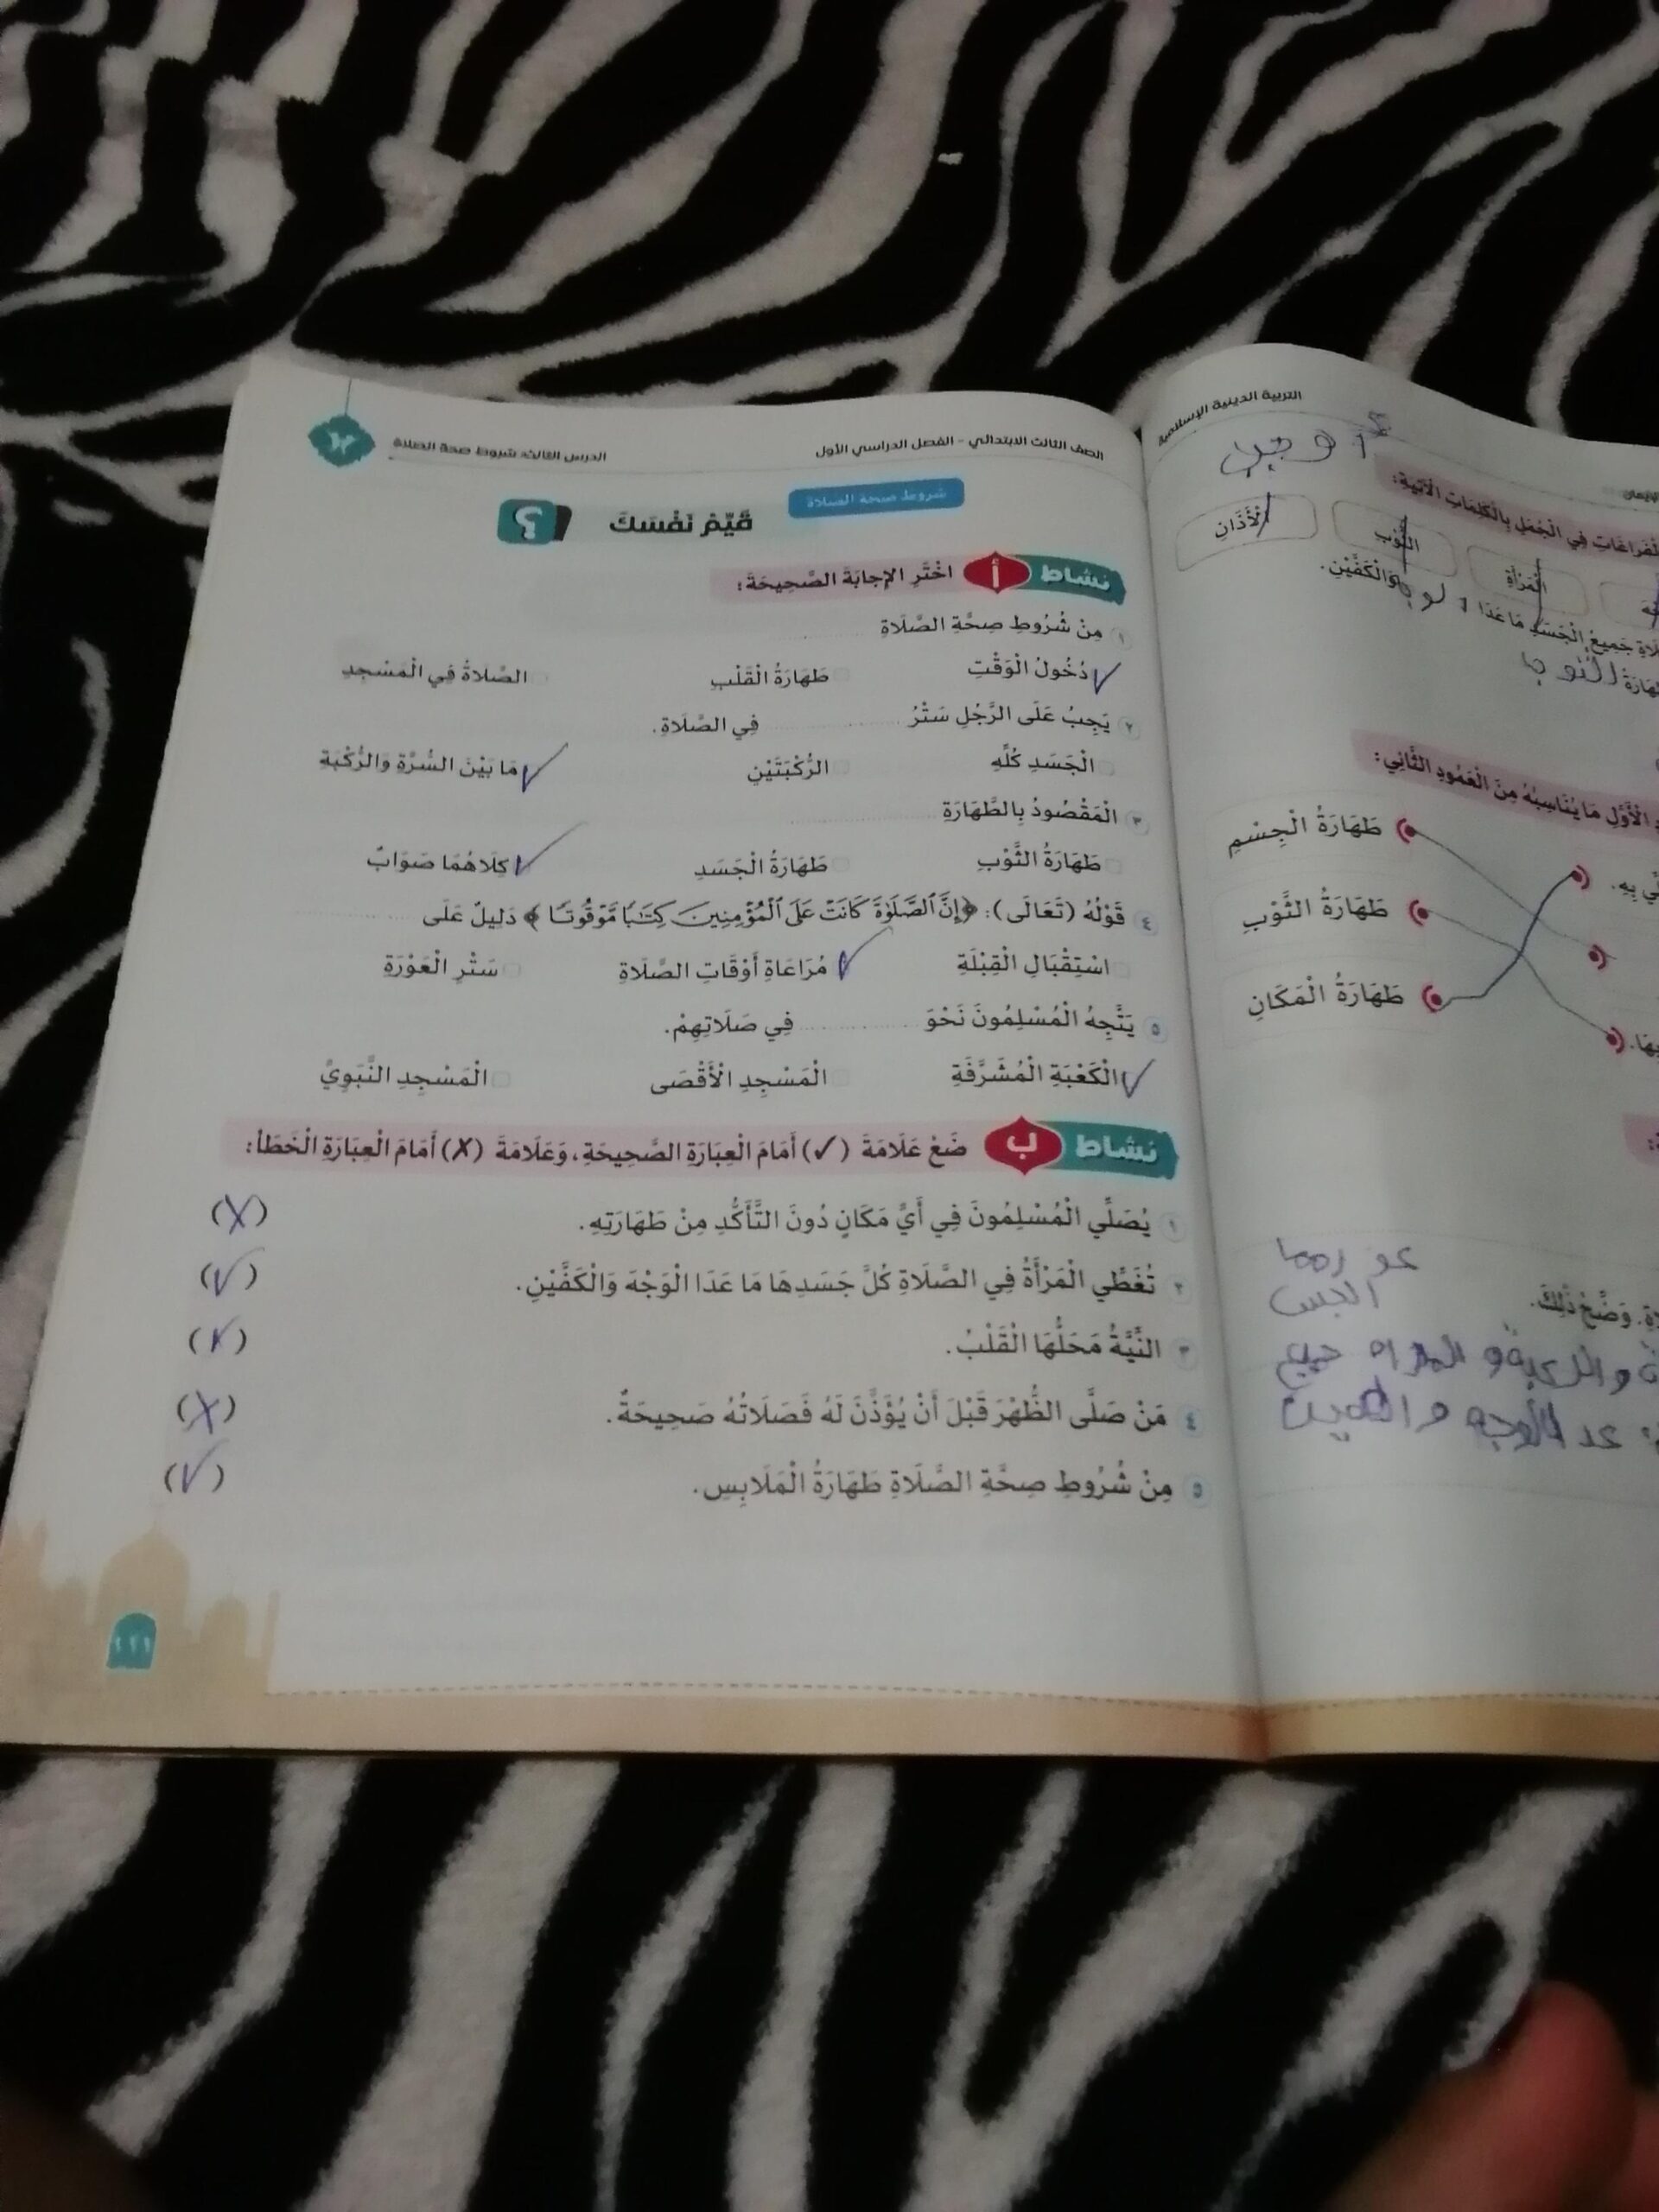 الصف الثالث الابتدائي - الفصل الدراسي الأول
الدرس الثالث: شروط صحة الصلاة
شروط صحة الصلاة
قَيِّمْ نَفْسَكَ
نشاط أ اخْتَرِ الإجابَةَ الصَّحِيحَةَ:
١ مِنْ شُرُوطِ صِحَّةِ الصَّلَاةِ ............
✓ دُخُولُ الْوَقْتِ طَهَارَةُ الْقَلْبِ الصَّلَاةُ فِي الْمَسْجِدِ
٢ يَجِبُ عَلَى الرَّجُلِ سَتْرُ ............ فِي الصَّلَاةِ.
الْجَسَدِ كُلِّهِ الرُّكْبَتَيْنِ ✓ مَا بَيْنَ السُّرَّةِ وَالرُّكْبَةِ
٣ الْمَقْصُودُ بِالطَّهَارَةِ ............
طَهَارَةُ الثَّوْبِ طَهَارَةُ الْجَسَدِ ✓ كِلَاهُمَا صَوَابٌ
٤ قَوْلُهُ (تَعَالَى): ﴿إِنَّ ٱلصَّلَوٰةَ كَانَتْ عَلَى ٱلْمُؤْمِنِينَ كِتَٰبًا مَّوْقُوتًا﴾ دَلِيلٌ عَلَى ............
اسْتِقْبَالِ الْقِبْلَةِ ✓ مُرَاعَاةِ أَوْقَاتِ الصَّلَاةِ سَتْرِ الْعَوْرَةِ
٥ يَتَّجِهُ الْمُسْلِمُونَ نَحْوَ ............ فِي صَلَاتِهِمْ.
✓ الْكَعْبَةِ الْمُشَرَّفَةِ الْمَسْجِدِ الْأَقْصَى الْمَسْجِدِ النَّبَوِيِّ
نشاط ب ضَعْ عَلَامَةَ (✓) أَمَامَ الْعِبَارَةِ الصَّحِيحَةِ، وَعَلَامَةَ (✗) أَمَامَ الْعِبَارَةِ الْخَطَأ:
١ يُصَلِّي الْمُسْلِمُونَ فِي أَيِّ مَكَانٍ دُونَ التَّأَكُّدِ مِنْ طَهَارَتِهِ. (✗)
٢ تُغَطِّي الْمَرْأَةُ فِي الصَّلَاةِ كُلَّ جَسَدِهَا مَا عَدَا الْوَجْهَ وَالْكَفَّيْنِ. (✓)
٣ النِّيَّةُ مَحَلُّهَا الْقَلْبُ. (✓)
٤ مَنْ صَلَّى الظُّهْرَ قَبْلَ أَنْ يُؤَذَّنَ لَهُ فَصَلَاتُهُ صَحِيحَةٌ. (✗)
٥ مِنْ شُرُوطِ صِحَّةِ الصَّلَاةِ طَهَارَةُ الْمَلَابِسِ. (✓)
التربية الدينية الإسلامية
الْفَرَاغَاتِ فِي الْجُمَلِ بِالْكَلِمَاتِ الْآتِيَةِ:
الْمَرْأَةُ الثَّوْبِ الْأَذَانِ
جَمِيعُ الْجَسَدِ مَا عَدَا وَالْكَفَّيْنِ.
الْأَوَّلِ مَا يُنَاسِبُهُ مِنَ الْعَمُودِ الثَّانِي:
طَهَارَةُ الْجِسْمِ
طَهَارَةُ الثَّوْبِ
طَهَارَةُ الْمَكَانِ
وَضِّحْ ذَلِكَ.